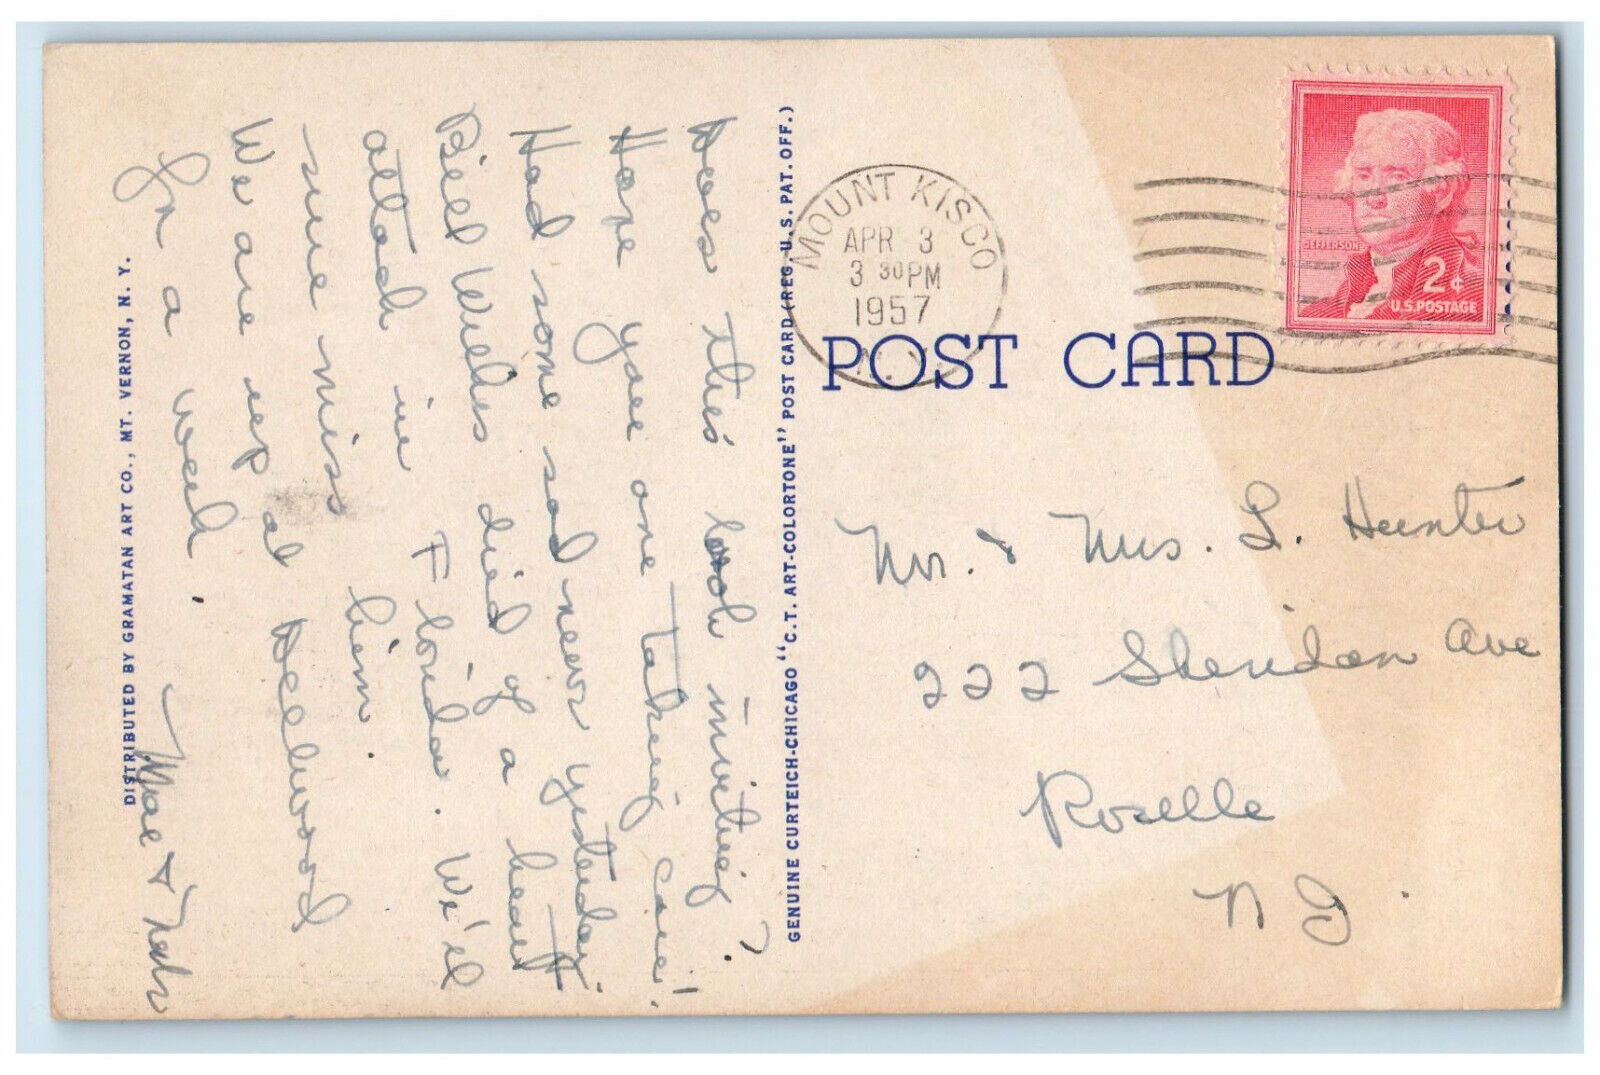 Does this look inviting?
Hope you are taking care!
Had some sad news yesterday.
Bill Welks died of a heart
attack in Florida. We'll
sure miss him.
We are up at Heelwood
for a week.
Mae &
DISTRIBUTED BY GRAMATAN ART CO., MT. VERNON, N. Y.
GENUINE CURTEICH-CHICAGO "C.T. ART-COLORTONE" POST CARD (REG. U.S. PAT. OFF.)
POST CARD
MOUNT KISCO
APR 3
3 30 PM
1957
N. Y.
JEFFERSON
2¢
U.S. POSTAGE
Mr. & Mrs. L. Hunter
222 Sheridan Ave
Roselle
N J.